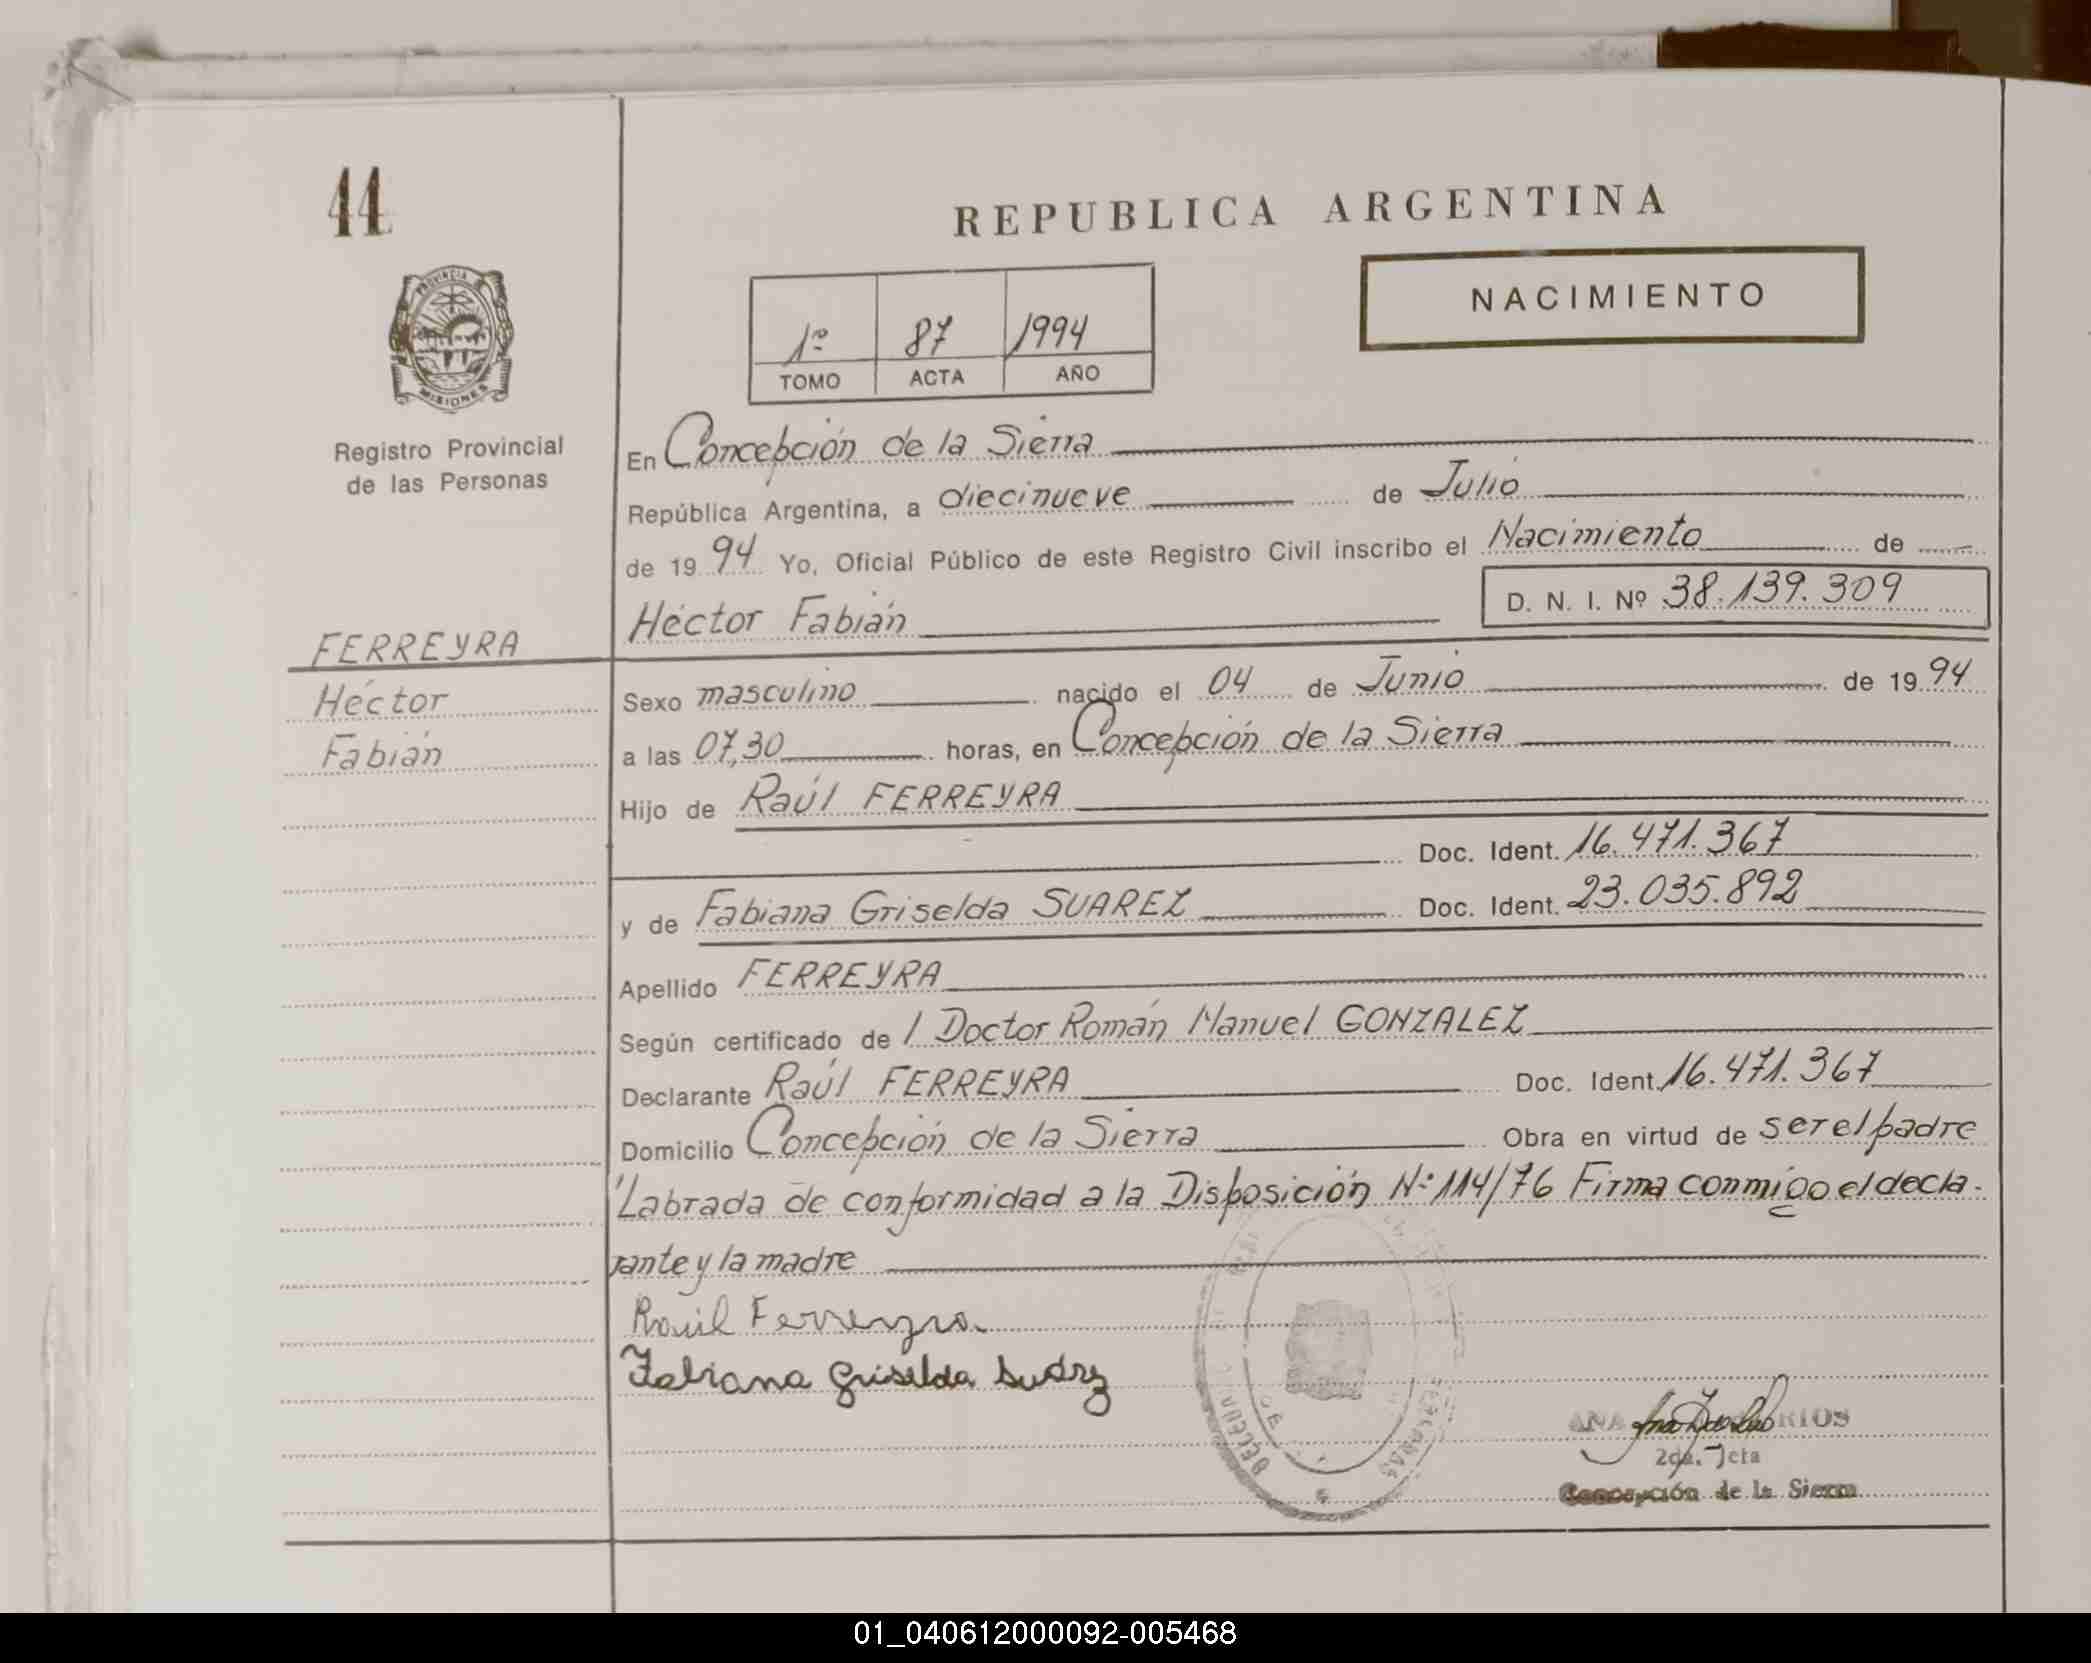 44
REPUBLICA ARGENTINA
NACIMIENTO
1º 87 1994
TOMO ACTA AÑO
PROVINCIA
MISIONES
Registro Provincial
de las Personas
En Concepción de la Sierra
República Argentina, a diecinueve de Julio
de 1994 Yo, Oficial Público de este Registro Civil inscribo el Nacimiento de
Héctor Fabián D. N. I. Nº 38.139.309
FERREYRA
Héctor
Fabián
Sexo masculino nacido el 04 de Junio de 1994
a las 07,30 horas, en Concepción de la Sierra
Hijo de Raúl FERREYRA
Doc. Ident. 16.471.367
y de Fabiana Griselda SUAREZ Doc. Ident. 23.035.892
Apellido FERREYRA
Según certificado de l Doctor Román Manuel GONZALEZ
Declarante Raúl FERREYRA Doc. Ident. 16.471.367
Domicilio Concepción de la Sierra Obra en virtud de ser el padre
Labrada de conformidad a la Disposición Nº 114/76 Firma conmigo el decla-
rante y la madre
Raúl Ferreyra
Fabiana Griselda Suárez
ANA RIOS
2da. Jefa
Concepción de la Sierra
01_040612000092-005468